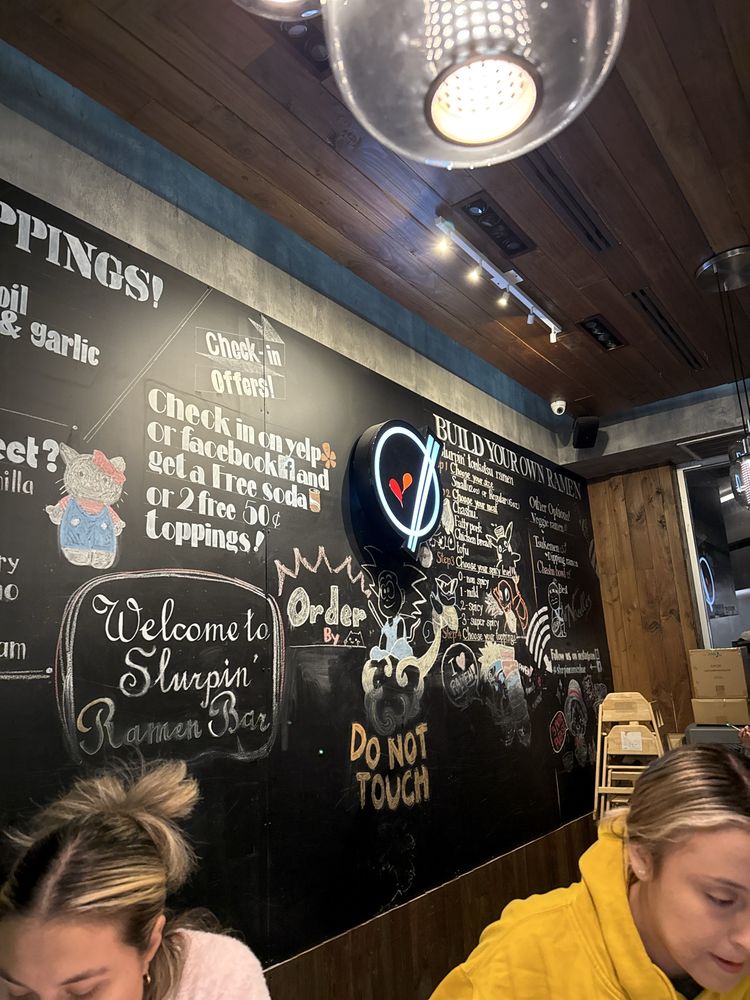 PPINGS!
oil
& garlic
eet?
nilla
ry
am
Check-in
Offers!
Check in on yelp
or facebook and
get a Free soda
or 2 free 50¢
toppings!
Welcome to
Slurpin'
Ramen Bar
Order
By
DO NOT
TOUCH
BUILD YOUR OWN RAMEN
Slurpin' Tonkotsu ramen
Choose your size
Choose your meat
Chashu
Fatty pork
Chicken breast
Tofu
Step3 Choose your spicy level
0-non spicy
1-mild
2-spicy
3-super spicy
Step4 Choose your toppings
Other Options!
Veggie ramen
Follow us on instagram